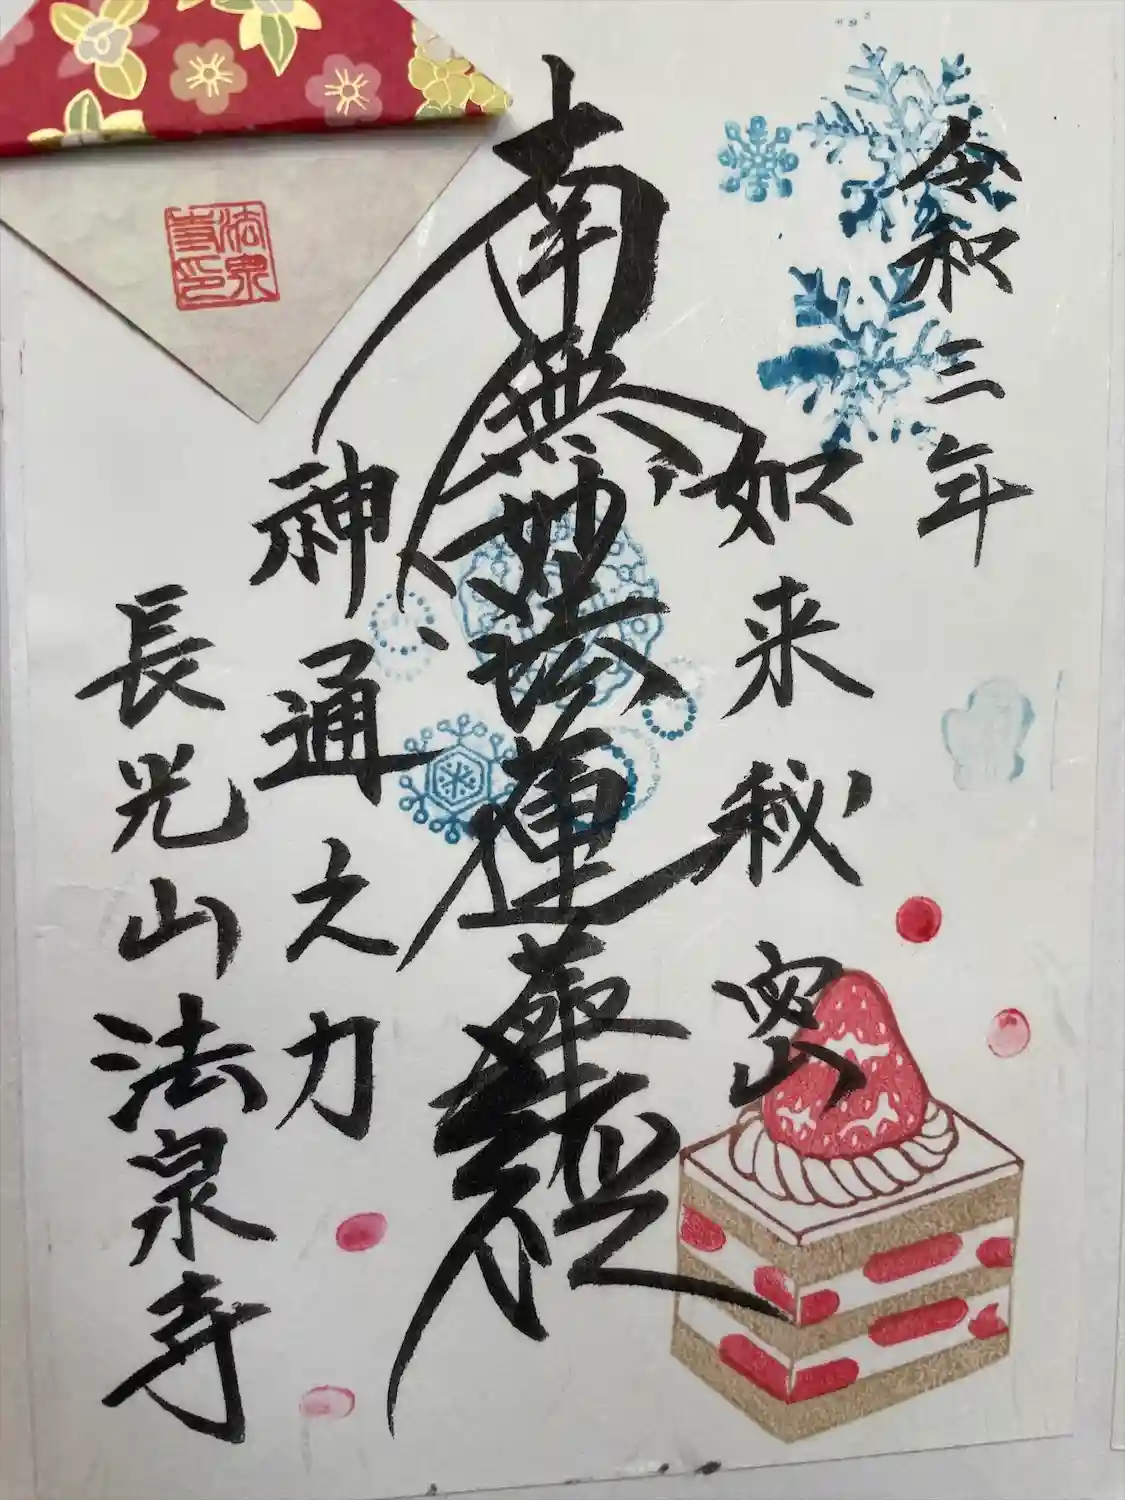 令和三年
如来秘密
南無妙法蓮華経
神通之力
長光山法泉寺
法泉寺印